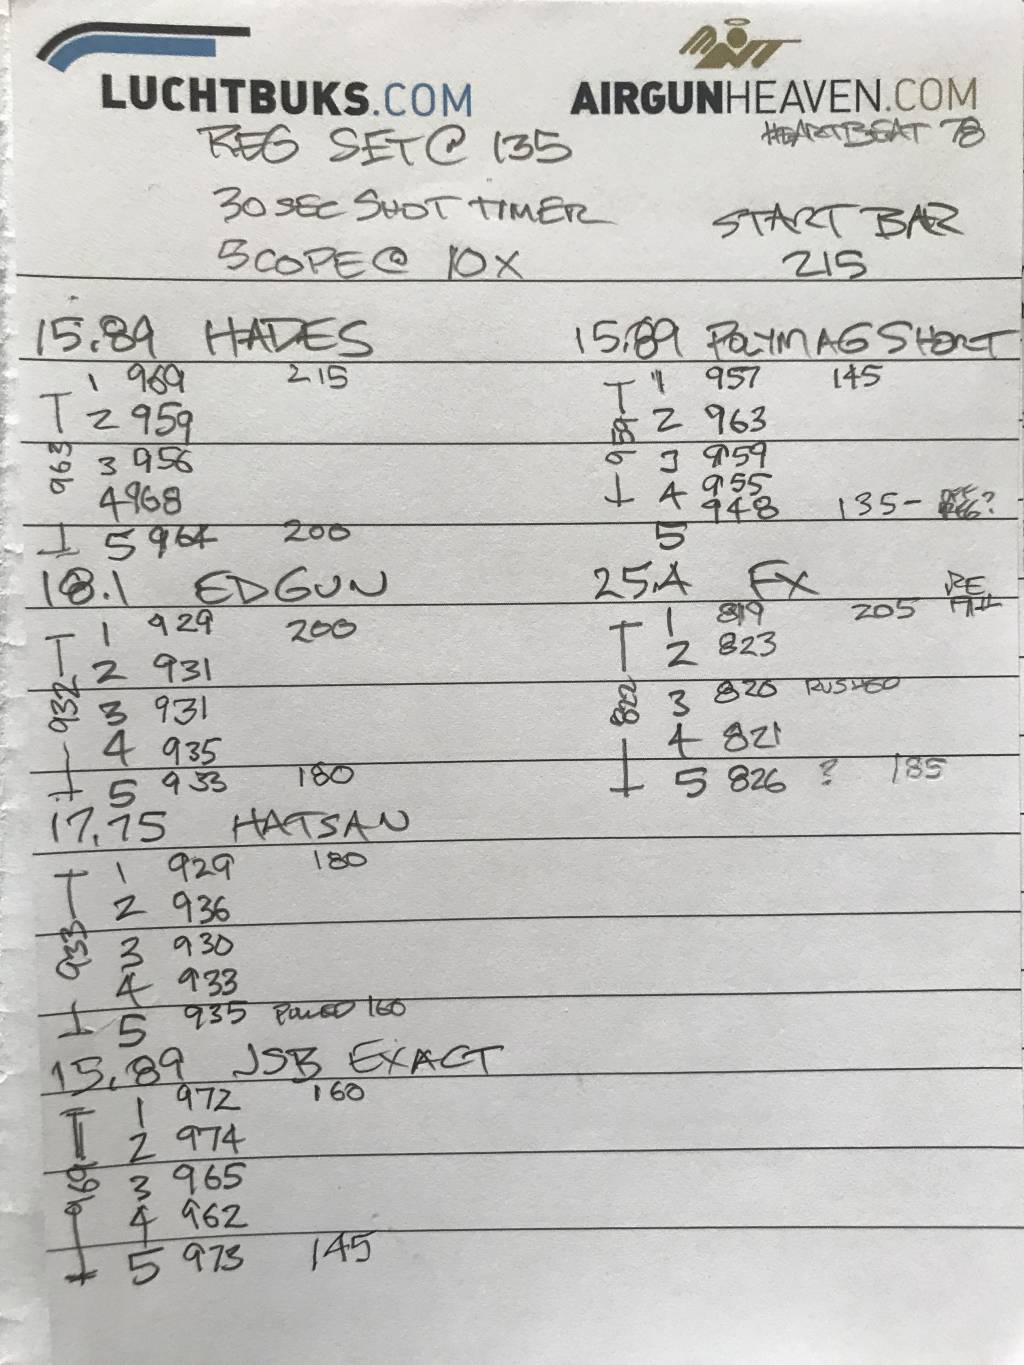 LUCHTBUKS.COM
AIRGUNHEAVEN.COM
HEARTBEAT 78
REG SET @ 135
30 SEC SHOT TIMER
SCOPE @ 10X
START BAR
215
15.89 HADES
1 969 215
2 959
3 956
4 968
5 964 200
963
18.1 EDGUN
1 929 200
2 931
3 931
4 935
5 933 180
932
17.75 HATSAN
1 929 180
2 936
3 930
4 933
5 935 160
933
15.89 JSB EXACT
1 972 160
2 974
3 965
4 962
5 973 145
969
15.89 POLYMAG SHORT
1 957 145
2 963
3 959
4 955
5 948 135 - OFF REG?
959
25.4 FX RE FILL
1 819 205
2 823
3 820 RUSHED
4 821
5 826 ? 185
822